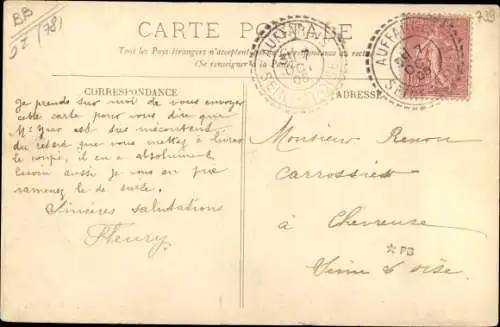 BB
52 (781
739
CARTE POSTALE
Tous les Pays étrangers n'acceptent
(Se renseigner à la Poste)
CORRESPONDANCE
ADRESSE
AUFFAY
SEINE-INFRE
AUFFAY
Je prends sur moi de vous envoyer
cette carte pour vous dire que
Mr est très mécontent
du retard que vous mettez à livrer
le coupé, il en a absolument
besoin aussi je vous en prie
ramenez le de suite.
Sincères salutations
Fleury
Monsieur Renou
Carrossier
à Chevreuse
* PB
Seine & Oise